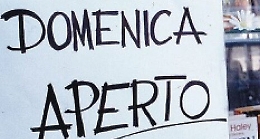 DOMENICA
APERTO
Haley